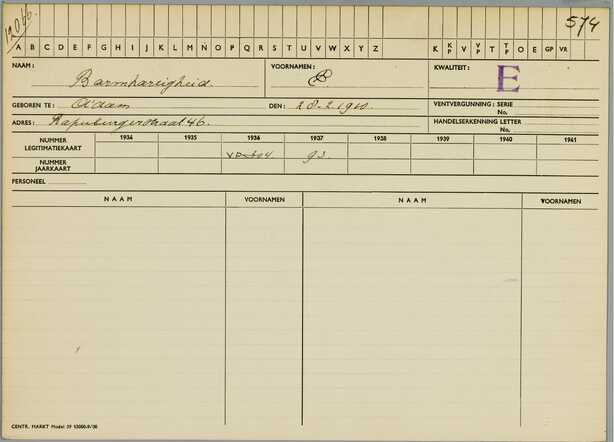 12066.
574
A B C D E F G H I J K L M N O P Q R S T U V W X Y Z K K P V V P T T P O E GP VR
NAAM: Barmhartigheid. VOORNAMEN: B. KWALITEIT: E
GEBOREN TE: A'dam DEN: 28-2-1910. VENTVERGUNNING: SERIE
No.
ADRES: Rapenburgerstraat 46. HANDELSERKENNING LETTER
No.
NUMMER LEGITIMATIEKAART 1934 1935 1936 1937 1938 1939 1940 1941
93.
NUMMER JAARKAART
PERSONEEL
NAAM VOORNAMEN NAAM VOORNAMEN
CENTR. MARKT Model 39 12000-9/38